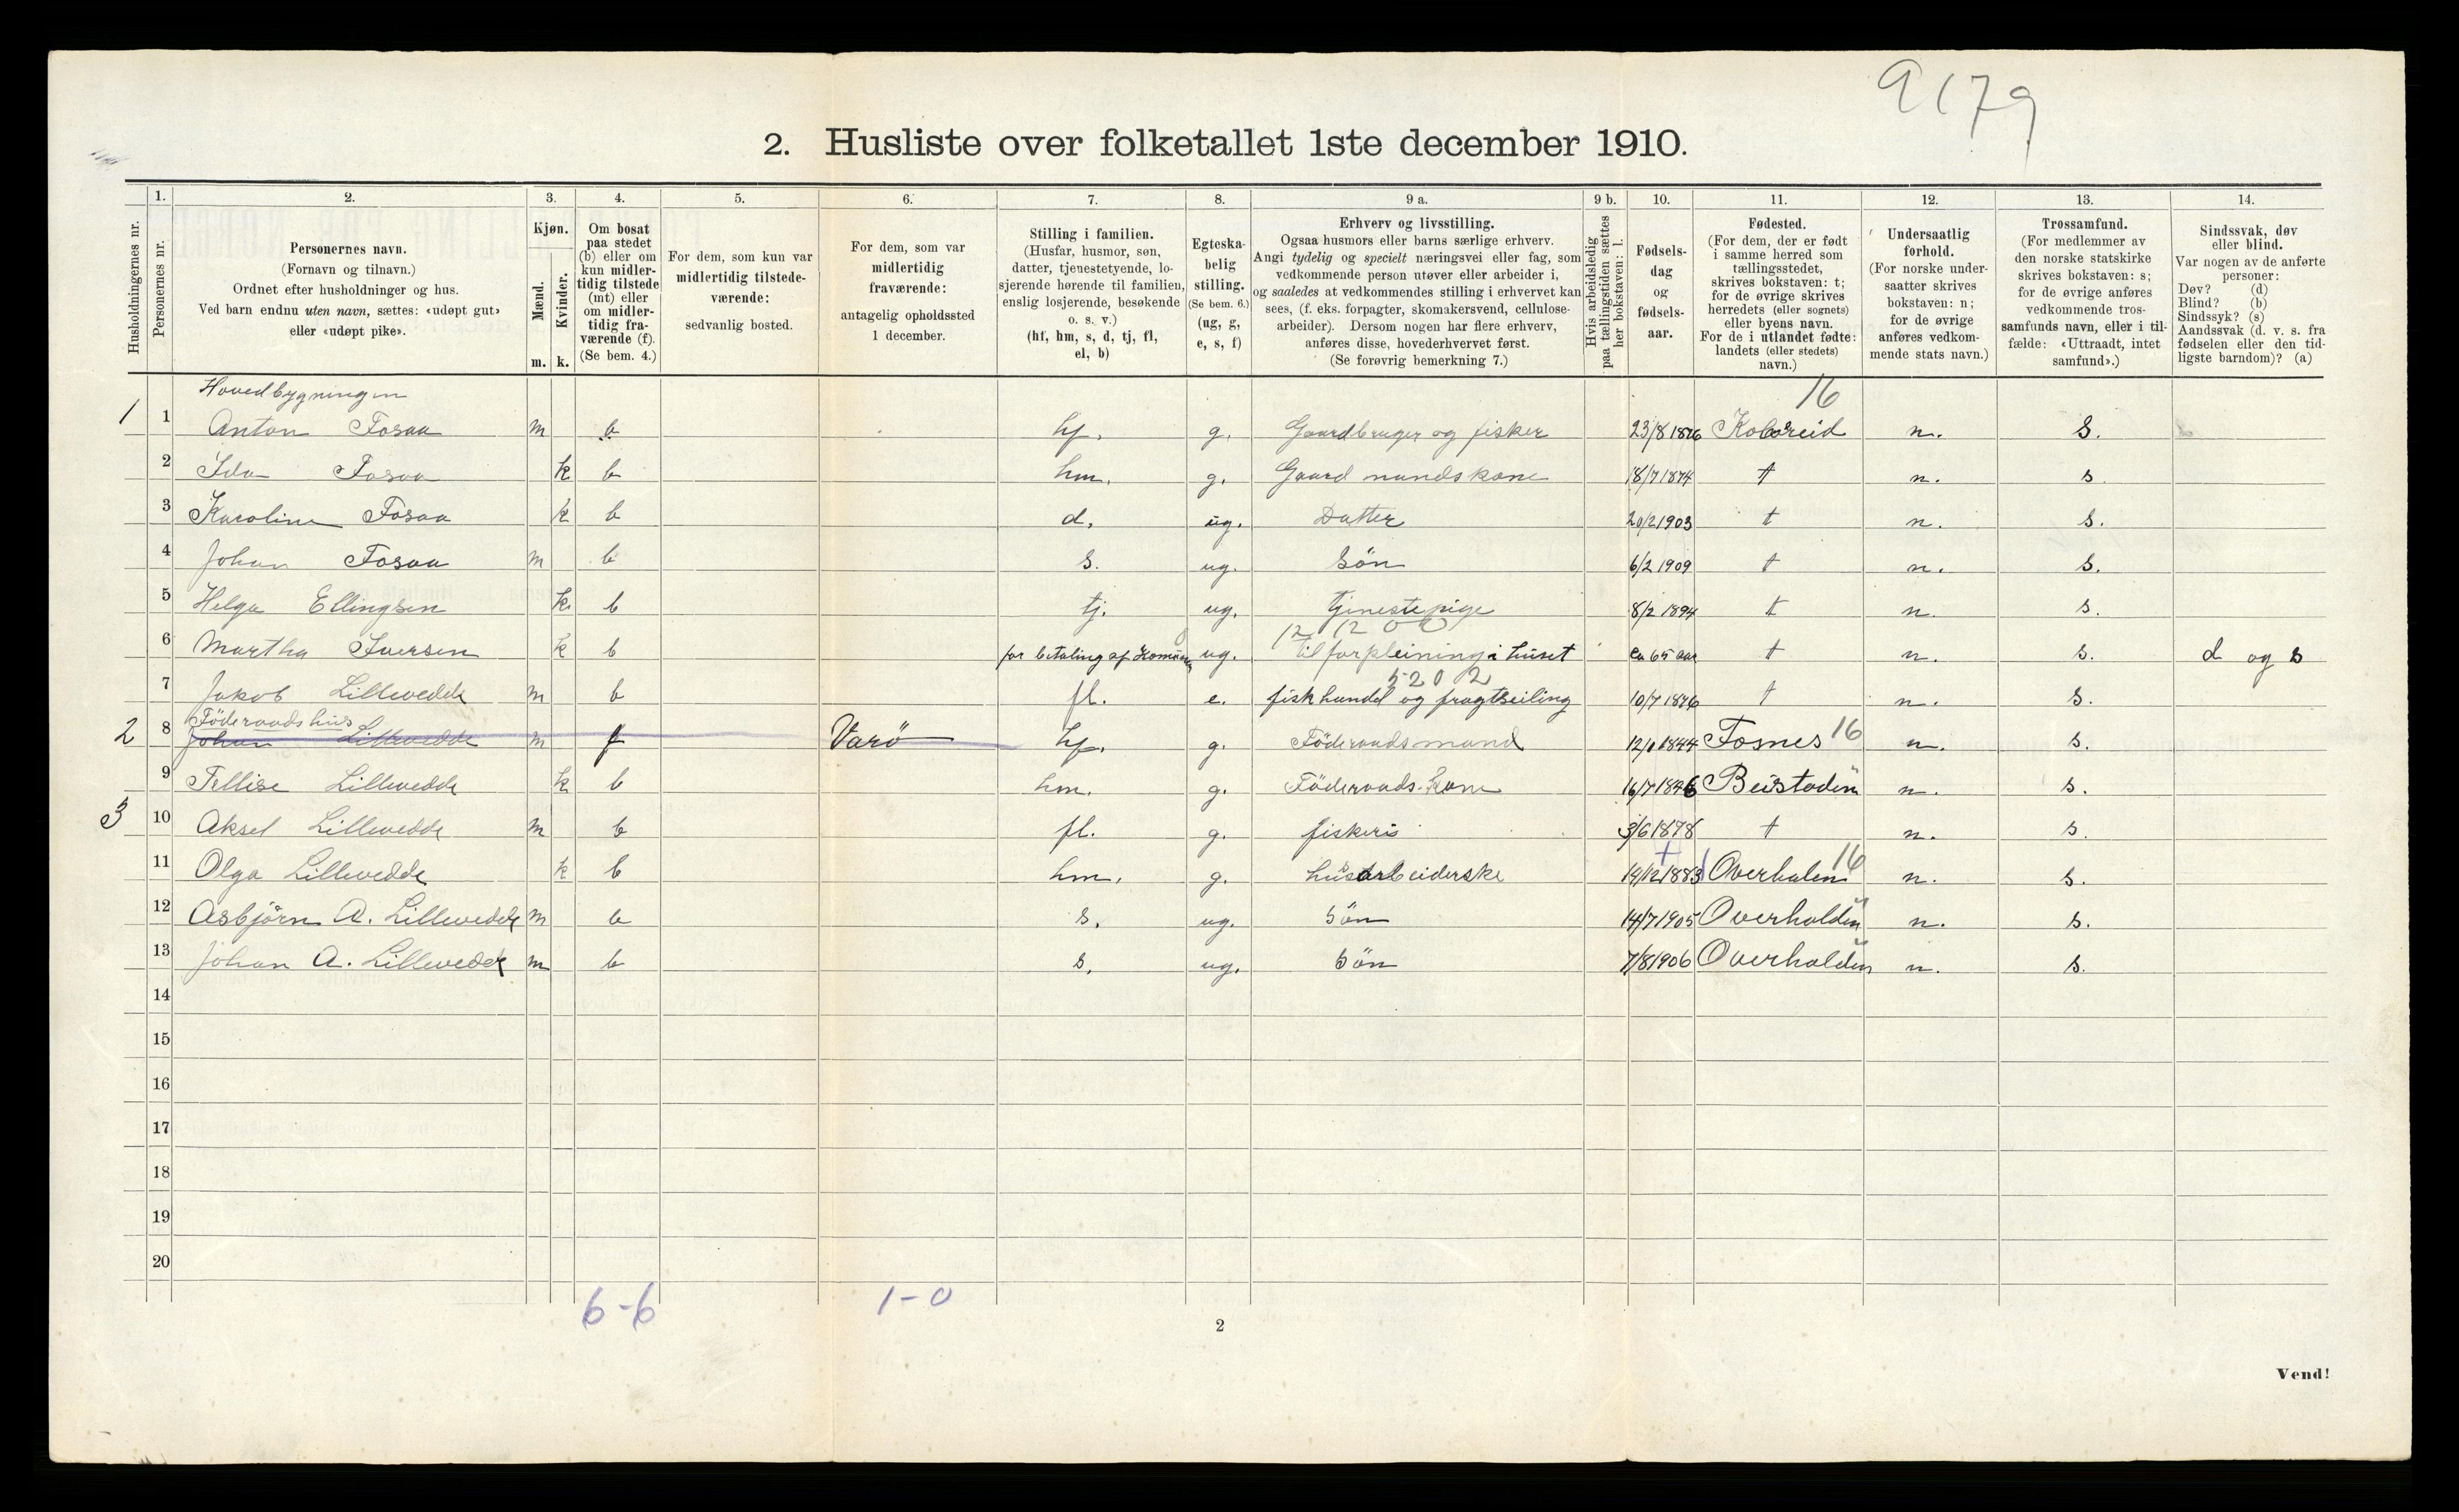 9179
2. Husliste over folketallet 1ste december 1910.
Husholdningernes nr.
1. Personernes nr.
2. Personernes navn.
(Fornavn og tilnavn.)
Ordnet efter husholdninger og hus.
Ved barn endnu uten navn, sættes: «udøpt gut»
eller «udøpt pike».
3. Kjøn.
Mænd. m.
Kvinder. k.
4. Om bosat
paa stedet
(b) eller om
kun midler-
tidig tilstede
(mt) eller
om midler-
tidig fra-
værende (f).
(Se bem. 4.)
5. For dem, som kun var
midlertidig tilstede-
værende:
sedvanlig bosted.
6. For dem, som var
midlertidig
fraværende:
antagelig opholdssted
1 december.
7. Stilling i familien.
(Husfar, husmor, søn,
datter, tjenestetyende, lo-
sjerende hørende til familien,
enslig losjerende, besøkende
o. s. v.)
(hf, hm, s, d, tj, fl,
el, b)
8. Egteska-
belig
stilling.
(Se bem. 6.)
(ug, g,
e, s, f)
9 a. Erhverv og livsstilling.
Ogsaa husmors eller barns særlige erhverv.
Angi tydelig og specielt næringsvei eller fag, som
vedkommende person utøver eller arbeider i,
og saaledes at vedkommendes stilling i erhvervet kan
sees, (f. eks. forpagter, skomakersvend, cellulose-
arbeider). Dersom nogen har flere erhverv,
anføres disse, hovederhvervet først.
(Se forøvrig bemerkning 7.)
9 b. Hvis arbeidsledig
paa tællingstiden sættes
her bokstaven: l.
10. Fødsels-
dag
og
fødsels-
aar.
11. Fødested.
(For dem, der er født
i samme herred som
tællingsstedet,
skrives bokstaven: t;
for de øvrige skrives
herredets (eller sognets)
eller byens navn.
For de i utlandet fødte:
landets (eller stedets)
navn.)
12. Undersaatlig
forhold.
(For norske under-
saatter skrives
bokstaven: n;
for de øvrige
anføres vedkom-
mende stats navn.)
13. Trossamfund.
(For medlemmer av
den norske statskirke
skrives bokstaven: s;
for de øvrige anføres
vedkommende tros-
samfunds navn, eller i til-
fælde: «Uttraadt, intet
samfund».)
14. Sindssvak, døv
eller blind.
Var nogen av de anførte
personer:
Døv? (d)
Blind? (b)
Sindssyk? (s)
Aandssvak (d. v. s. fra
fødselen eller den tid-
ligste barndom)? (a)
Hovedbygningen 16
1 1 Anton Fosaa m b hf. g. Gaardbruger og fisker 23/8 1876 Kolvereid n. s.
2 Ida Fosaa k b hm. g. Gaardmandskone 18/7 1874 t n. s.
3 Karoline Fosaa k b d. ug. Datter 20/2 1903 t n. s.
4 Johan Fosaa m b s. ug. Sön 6/2 1909 t n. s.
5 Helga Ellingsen k b tj. ug. tjenestepige 8/2 1894 t n. s.
12 12 00
6 Martha Iversen k b for betaling af Komunen ug. til forpleining i huset ca 65 aar t n. s. d og s
5202
7 Jakob Lillevedde m b fl. e. fiskhandel og fragtseiling 10/7 1876 t n. s.
Föderaadshus
2 8 Johan Lillevedde m f Varö hf. g. Föderaadsmand 12/1 1844 Fosnes 16 n. s.
9 Tellise Lillevedde k b hm. g. Föderaads-kone 16/7 1846 Beistaden n. s.
3 10 Aksel Lillevedde m b fl. g. fiskeri 3/6 1878 t n. s.
11 Olga Lillevedde k b hm. g. husarbeiderske 14/12 1883 Overhalen 16 n. s.
12 Asbjörn A. Lillevedde m b s. ug. Sön 14/7 1905 Overhalden n. s.
13 Johan A. Lillevedde m b s. ug. Sön 7/8 1906 Overhalden n. s.
14
15
16
17
18
19
20
6-6 1-0
2
Vend!